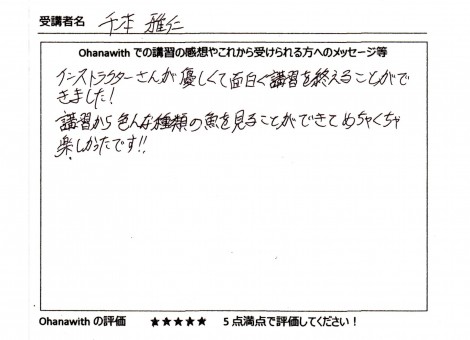 受講者名 千本 雅仁
Ohanawith での講習の感想やこれから受けられる方へのメッセージ等
インストラクターさんが優しくて面白く講習を終えることがで
きました!
講習から色んな種類の魚を見ることができてめちゃくちゃ
楽しかったです!!
Ohanawith の評価 ★★★★★ 5点満点で評価してください!